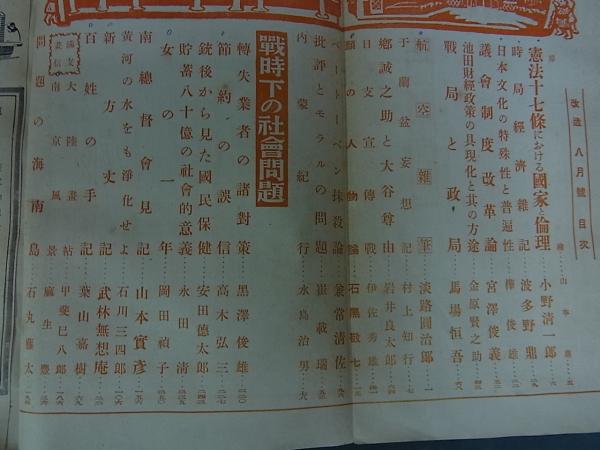 改造 八月號 目次
憲法十七條における國家と倫理……小野清一郎
日本文化の特殊性と普遍性……樺俊雄
時局經濟雜記……波多野鼎
議會制度改革論……宮澤俊義
池田財經政策の具現化と其の方途……金原賢之助
戰局と政局……馬場恒吾
航空雜筆……淡路圓治郎
于蘭盆妄想記……村上知行
鄕誠之助と大谷尊由……岩井良太郎
日支宣傳戰……伊佐秀雄
顏の人物論……石黑敬七
ベートーベン抹殺論……兼常清佐
批評とモラルの問題……崔載瑞
內蒙紀行……水島治男
戰時下の社會問題
轉失業者の諸對策……黑澤俊雄
節約の誤信……高木弘三
銃後から見た國民保健……安田德太郎
貯蓄八十億の社會的意義……永田清
女の一年……岡田禎子
南總督會見記……山本實彥
黃河の水をも淨化せよ……石川三四郎
新方丈記……武林無想庵
百姓の手記……葉山嘉樹
大陸畫帖……甲斐巳八郎
南京風景……麻生豊
問題の海南島……石丸藤太